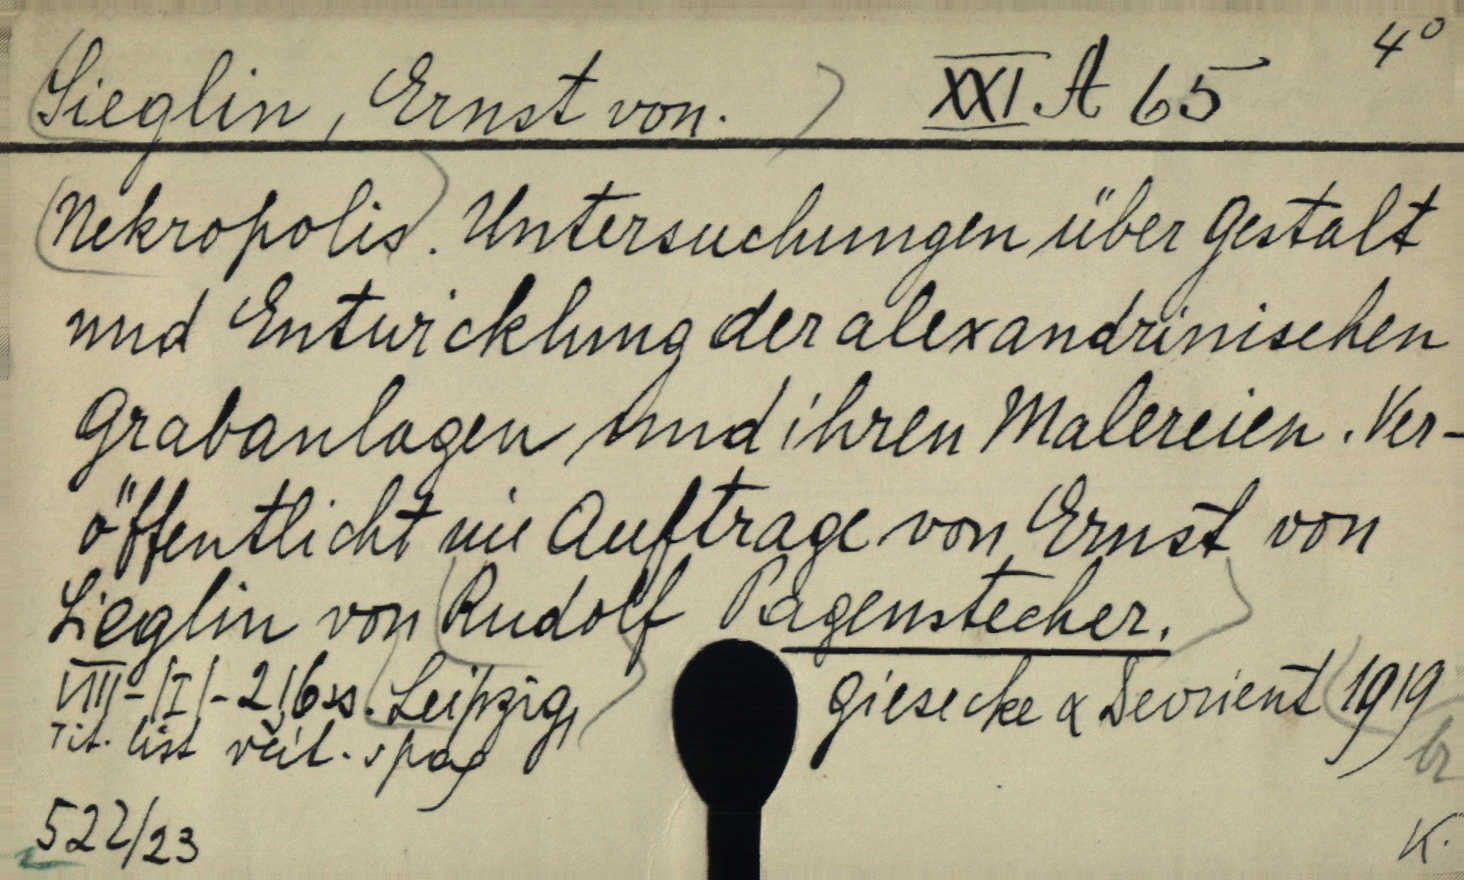 Sieglin, Ernst von. XXI A 65 4°
(Nekropolis). Untersuchungen über Gestalt
und Entwicklung der alexandrinischen
Grabanlagen und ihren Malereien. Ver-
öffentlicht im Auftrage von Ernst von
Sieglin von (Rudolf Pagenstecher.)
VIII-|I|-216 ss. (Leipzig,) Giesecke & Devrient (1919
Tit. list
br
522/23
K.